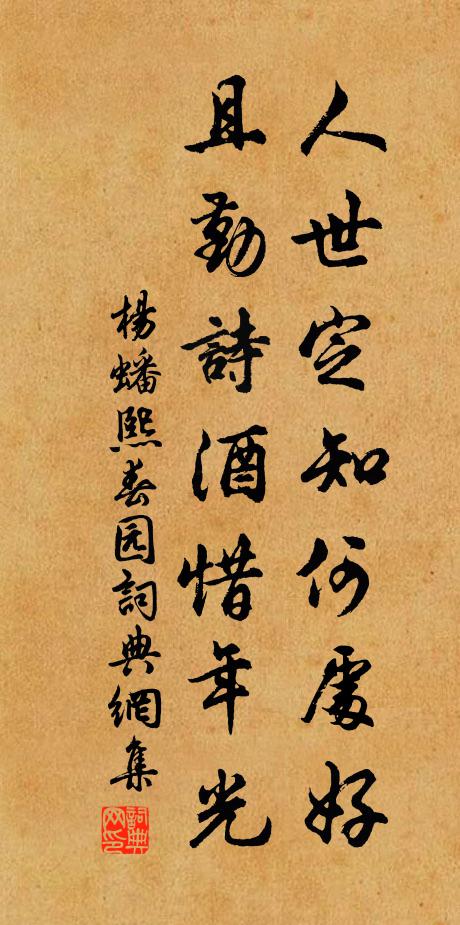 人世定知何處好
且勤詩酒惜年光
楊蟠熙春园詞典網集
詞典
网印